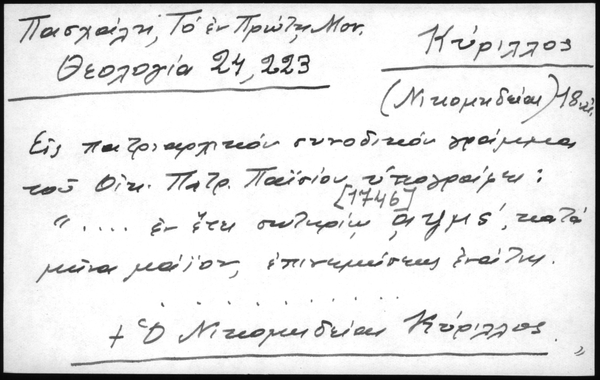 Πασχάλη, Τό ἐν Πρώτῃ Μον.
Θεολογία 24, 223
Κύριλλος
(Νικομηδείας) 18
Εἰς πατριαρχικόν συνοδικόν γράμμα
τοῦ Οἰκ. Πατρ. Παϊσίου ὑπογράφει:
[1746]
".... ἐν ἔτει σωτηρίῳ ͵αψμς΄, κατά
μῆνα μάϊον, ἐπινεμήσεως ἐνάτης.
. . . . . . . . . . . . .
+ Ὁ Νικομηδείας Κύριλλος. »